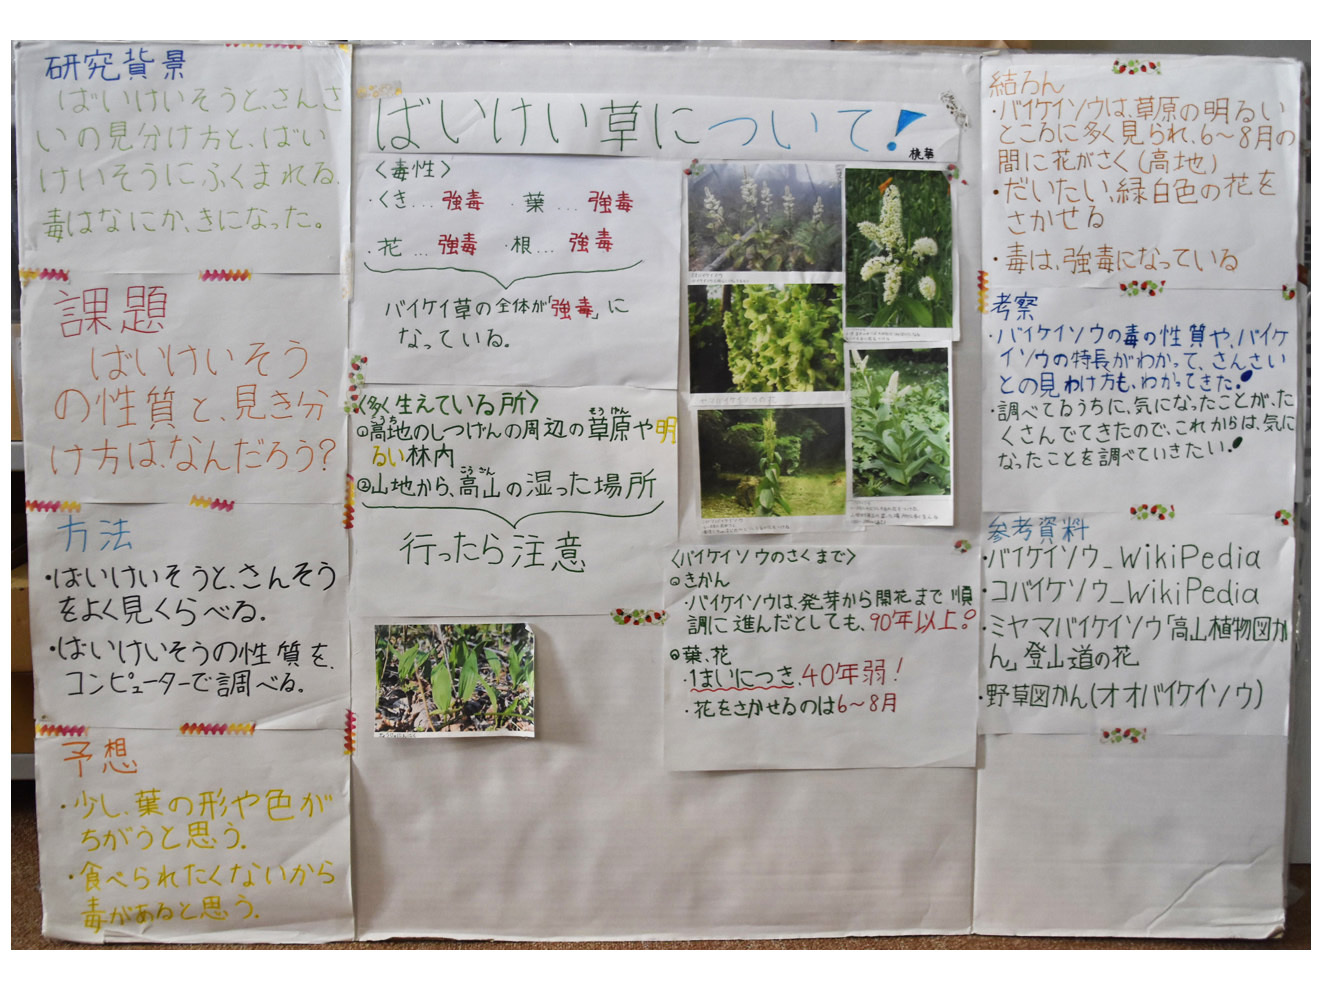 研究背景
ばいけいそうと、さんさ
いの見分け方と、ばい
けいそうにふくまれる、
毒はなにか、きになった。
課題
ばいけいそう
の性質と、見き分
け方は、なんだろう?
方法
・ばいけいそうと、さんそう
をよく見くらべる。
・ばいけいそうの性質を、
コンピューターで調べる。
予想
・少し、葉の形や色が
ちがうと思う。
・食べられたくないから
毒があると思う。
ばいけい草について!
桃華
〈毒性〉
・くき… 強毒 ・葉 … 強毒
・花 … 強毒 ・根… 強毒
バイケイ草の全体が「強毒」に
なっている。
〈多く生えている所〉
①高地のしつげんの周辺の草原や明
るい林内
②山地から、高山の湿った場所
行ったら注意
〈バイケイソウのさくまで〉
①きかん
・バイケイソウは、発芽から開花まで順
調に進んだとしても、90年以上!
②葉、花
・1まいにつき、40年弱!
・花をさかせるのは6〜8月
結ろん
・バイケイソウは、草原の明るい
ところに多く見られ、6〜8月の
間に花がさく(高地)
・だいたい、緑白色の花を
さかせる
・毒は、強毒になっている
考察
・バイケイソウの毒の性質や、バイケ
イソウの特長がわかって、さんさい
との見わけ方も、わかってきた!
・調べてるうちに、気になったことが、た
くさんでてきたので、これからは、気に
なったことを調べていきたい!
参考資料
・バイケイソウ_WikiPedia
・コバイケソウ_WikiPedia
・ミヤマバイケイソウ「高山植物図か
ん」登山道の花
・野草図かん(オオバイケイソウ)